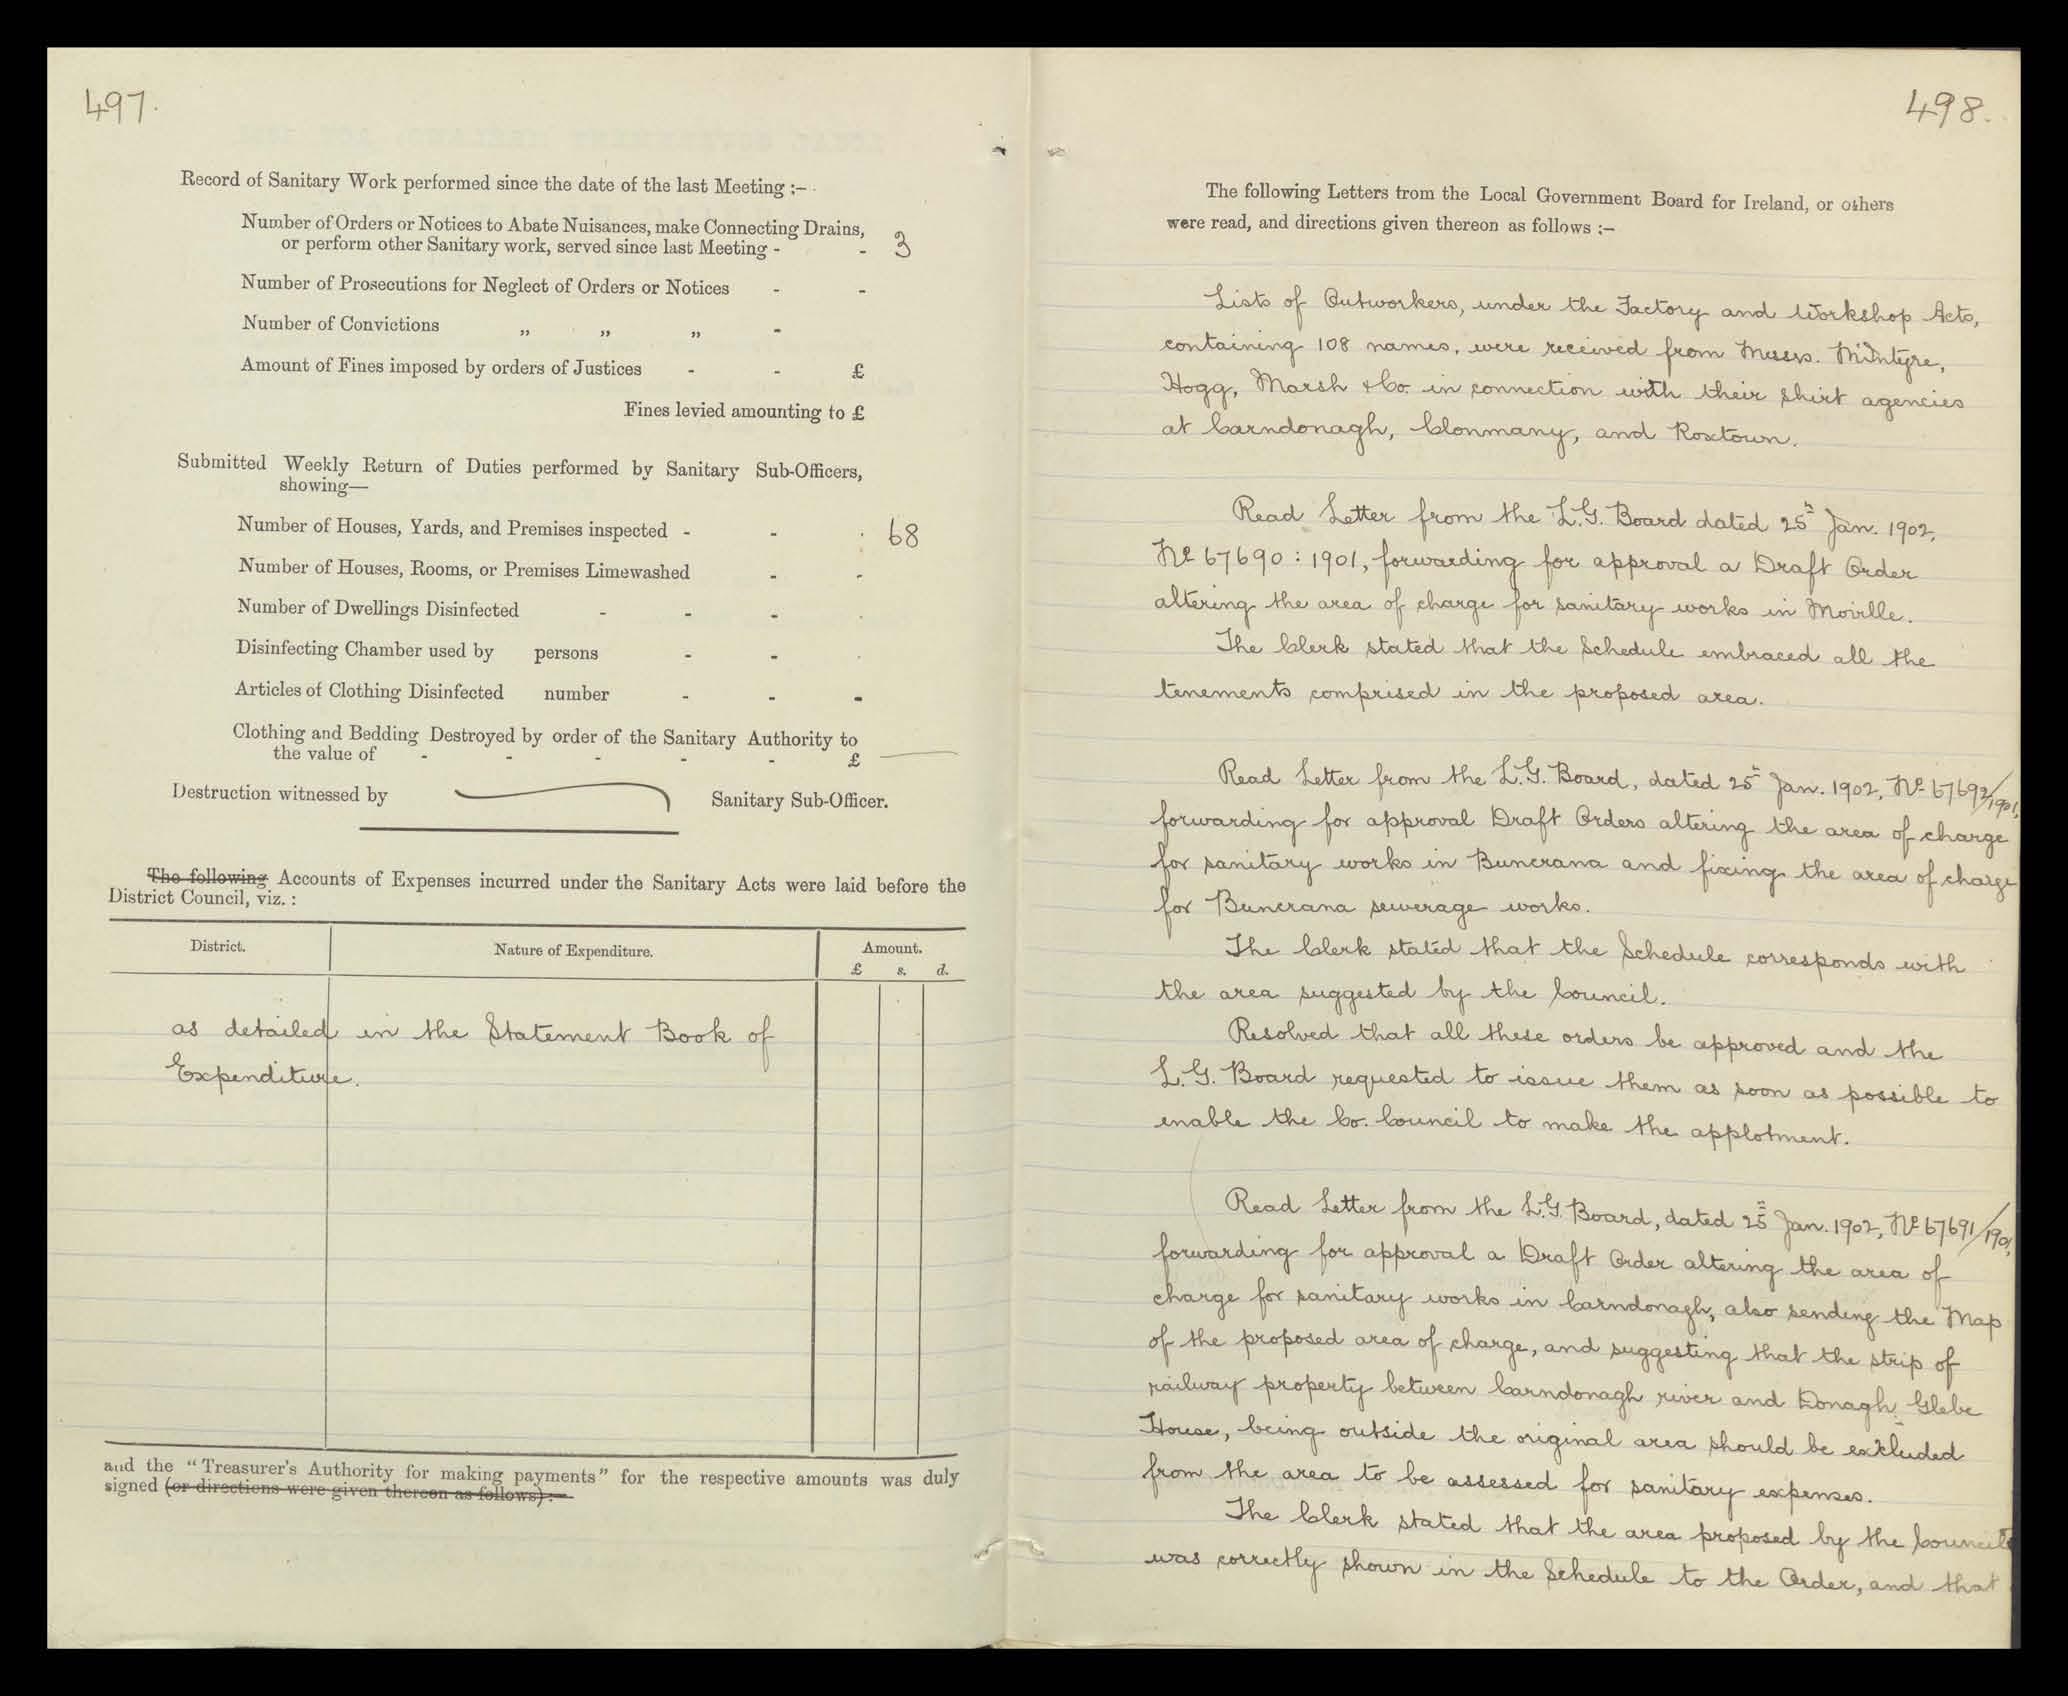 497.
Record of Sanitary Work performed since the date of the last Meeting :–
Number of Orders or Notices to Abate Nuisances, make Connecting Drains,
or perform other Sanitary work, served since last Meeting - - 3
Number of Prosecutions for Neglect of Orders or Notices - -
Number of Convictions „ „ „ -
Amount of Fines imposed by orders of Justices - - £
Fines levied amounting to £
Submitted Weekly Return of Duties performed by Sanitary Sub-Officers,
showing—
Number of Houses, Yards, and Premises inspected - - . 68
Number of Houses, Rooms, or Premises Limewashed - -
Number of Dwellings Disinfected - - - .
Disinfecting Chamber used by persons - - .
Articles of Clothing Disinfected number - - -
Clothing and Bedding Destroyed by order of the Sanitary Authority to
the value of - - - - - £ —
Destruction witnessed by Sanitary Sub-Officer.
The following Accounts of Expenses incurred under the Sanitary Acts were laid before the
District Council, viz. :
District. Nature of Expenditure. Amount.
£ s. d.
as detailed in the Statement Book of
Expenditure.
and the "Treasurer's Authority for making payments" for the respective amounts was duly
signed (or directions were given thereon as follows) :—
498.
The following Letters from the Local Government Board for Ireland, or others
were read, and directions given thereon as follows :–
Lists of Outworkers, under the Factory and Workshop Acts,
containing 108 names, were received from Messrs. McIntyre,
Hogg, Marsh & Co. in connection with their shirt agencies
at Carndonagh, Clonmany, and Roxtown.
Read Letter from the L.G. Board dated 25th Jan. 1902,
No 67690 : 1901, forwarding for approval a Draft Order
altering the area of charge for sanitary works in Moville.
The Clerk stated that the Schedule embraced all the
tenements comprised in the proposed area.
Read Letter from the L.G. Board, dated 25th Jan. 1902, No 67692/1901,
forwarding for approval Draft Orders altering the area of charge
for sanitary works in Buncrana and fixing the area of charge
for Buncrana sewerage works.
The Clerk stated that the Schedule corresponds with
the area suggested by the Council.
Resolved that all these orders be approved and the
L.G. Board requested to issue them as soon as possible to
enable the Co. Council to make the applotment.
Read Letter from the L.G. Board, dated 25th Jan. 1902, No 67691/1901,
forwarding for approval a Draft Order altering the area of
charge for sanitary works in Carndonagh, also sending the Map
of the proposed area of charge, and suggesting that the strip of
railway property between Carndonagh river and Donagh Glebe
House, being outside the original area should be excluded
from the area to be assessed for sanitary expenses.
The Clerk stated that the area proposed by the Council
was correctly shown in the Schedule to the Order, and that